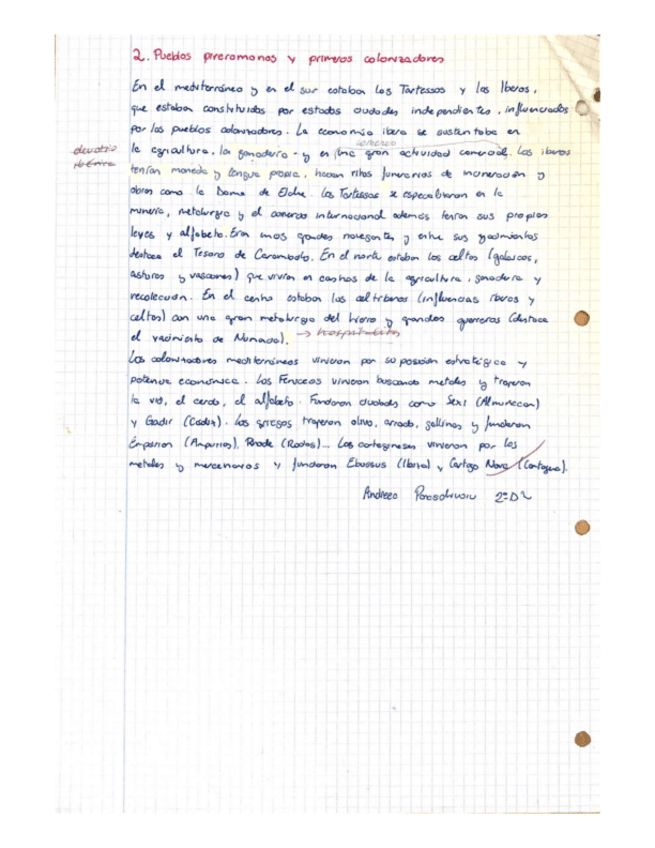 2. Pueblos prerromanos y primeros colonizadores
En el mediterráneo y en el sur estaban los Tartessos y los Iberos,
que estaban constituidos por estados ciudades independientes, influenciados
por los pueblos colonizadores. La economía ibera se sustentaba en
cereales
devotio
ibérica
la agricultura, la ganadería y en una gran actividad comercial. Los iberos
tenían moneda y lengua propia, hacían ritos funerarios de incineración y
obras como la Dama de Elche. Los Tartessos se especializaron en la
minería, metalurgia y el comercio internacional además tenían sus propias
leyes y alfabeto. Eran unos grandes navegantes y entre sus yacimientos
destaca el Tesoro de Carambolo. En el norte estaban los celtas (galaicos,
astures y vascones) que vivían en castros de la agricultura, ganadería y
recolección. En el centro estaban los celtíberos (influencias iberos y
celtas) con una gran metalurgia del hierro y grandes guerreros (destaca
el yacimiento de Numancia). → hospitalitas
Los colonizadores mediterráneos vinieron por su posición estratégica y
potencia económica. Los Fenicios vinieron buscando metales y trajeron
la vid, el cerdo, el alfabeto. Fundaron ciudades como Sexi (Almuñecar)
y Gadir (Cádiz). Los griegos trajeron olivo, arado, gallinas y fundaron
Emporion (Ampurias), Rhode (Rodas)... Los cartagineses vinieron por los
metales y mercenarios y fundaron Ebussus (Ibiza) y Cartago Nova (Cartagena).
Andreea 2ºD